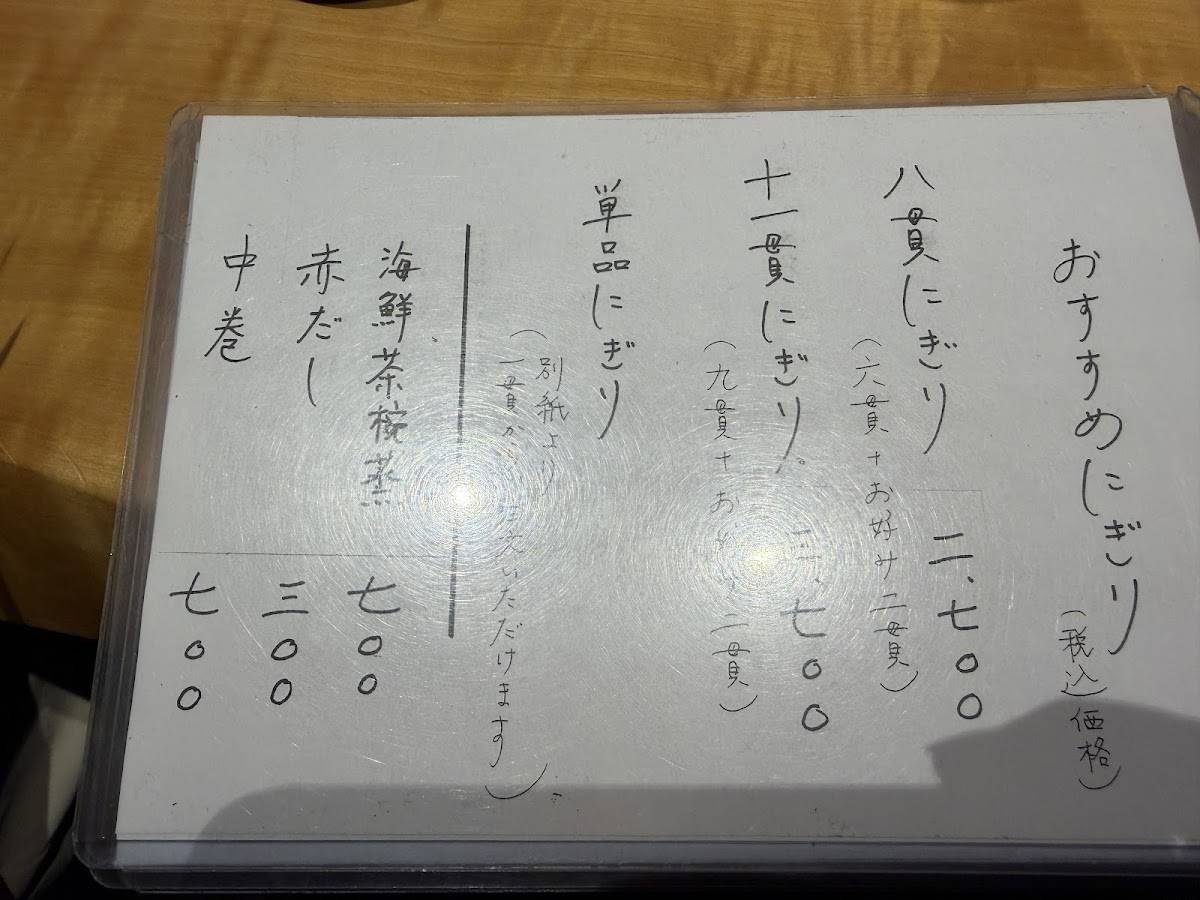 おすすめにぎり(税込価格)
八貫にぎり 二、七〇〇
(六貫+お好み二貫)
十一貫にぎり 三、七〇〇
(九貫+お 二貫)
単品にぎり
(別紙より
一貫から 文いただけます)
海鮮茶椀蒸 七〇〇
赤だし 三〇〇
中巻 七〇〇